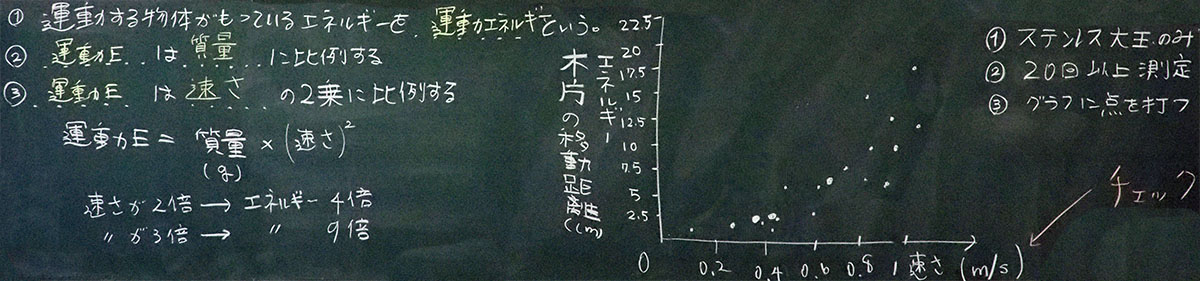 ① 運動する物体がもっているエネルギーを、運動エネルギという。
② 運動E は 質量 に比例する
③ 運動E は 速さ の2乗に比例する
運動E = 質量 × (速さ)²
(g)
速さが2倍 → エネルギー 4倍
〃 が3倍 → 〃 9倍
エネルギー
木片の移動距離
(cm)
22.5
20
17.5
15
12.5
10
7.5
5
2.5
0 0.2 0.4 0.6 0.8 1 速さ (m/s)
① ステンレス大玉のみ
② 20回以上測定
③ グラフに点を打つ
チェック